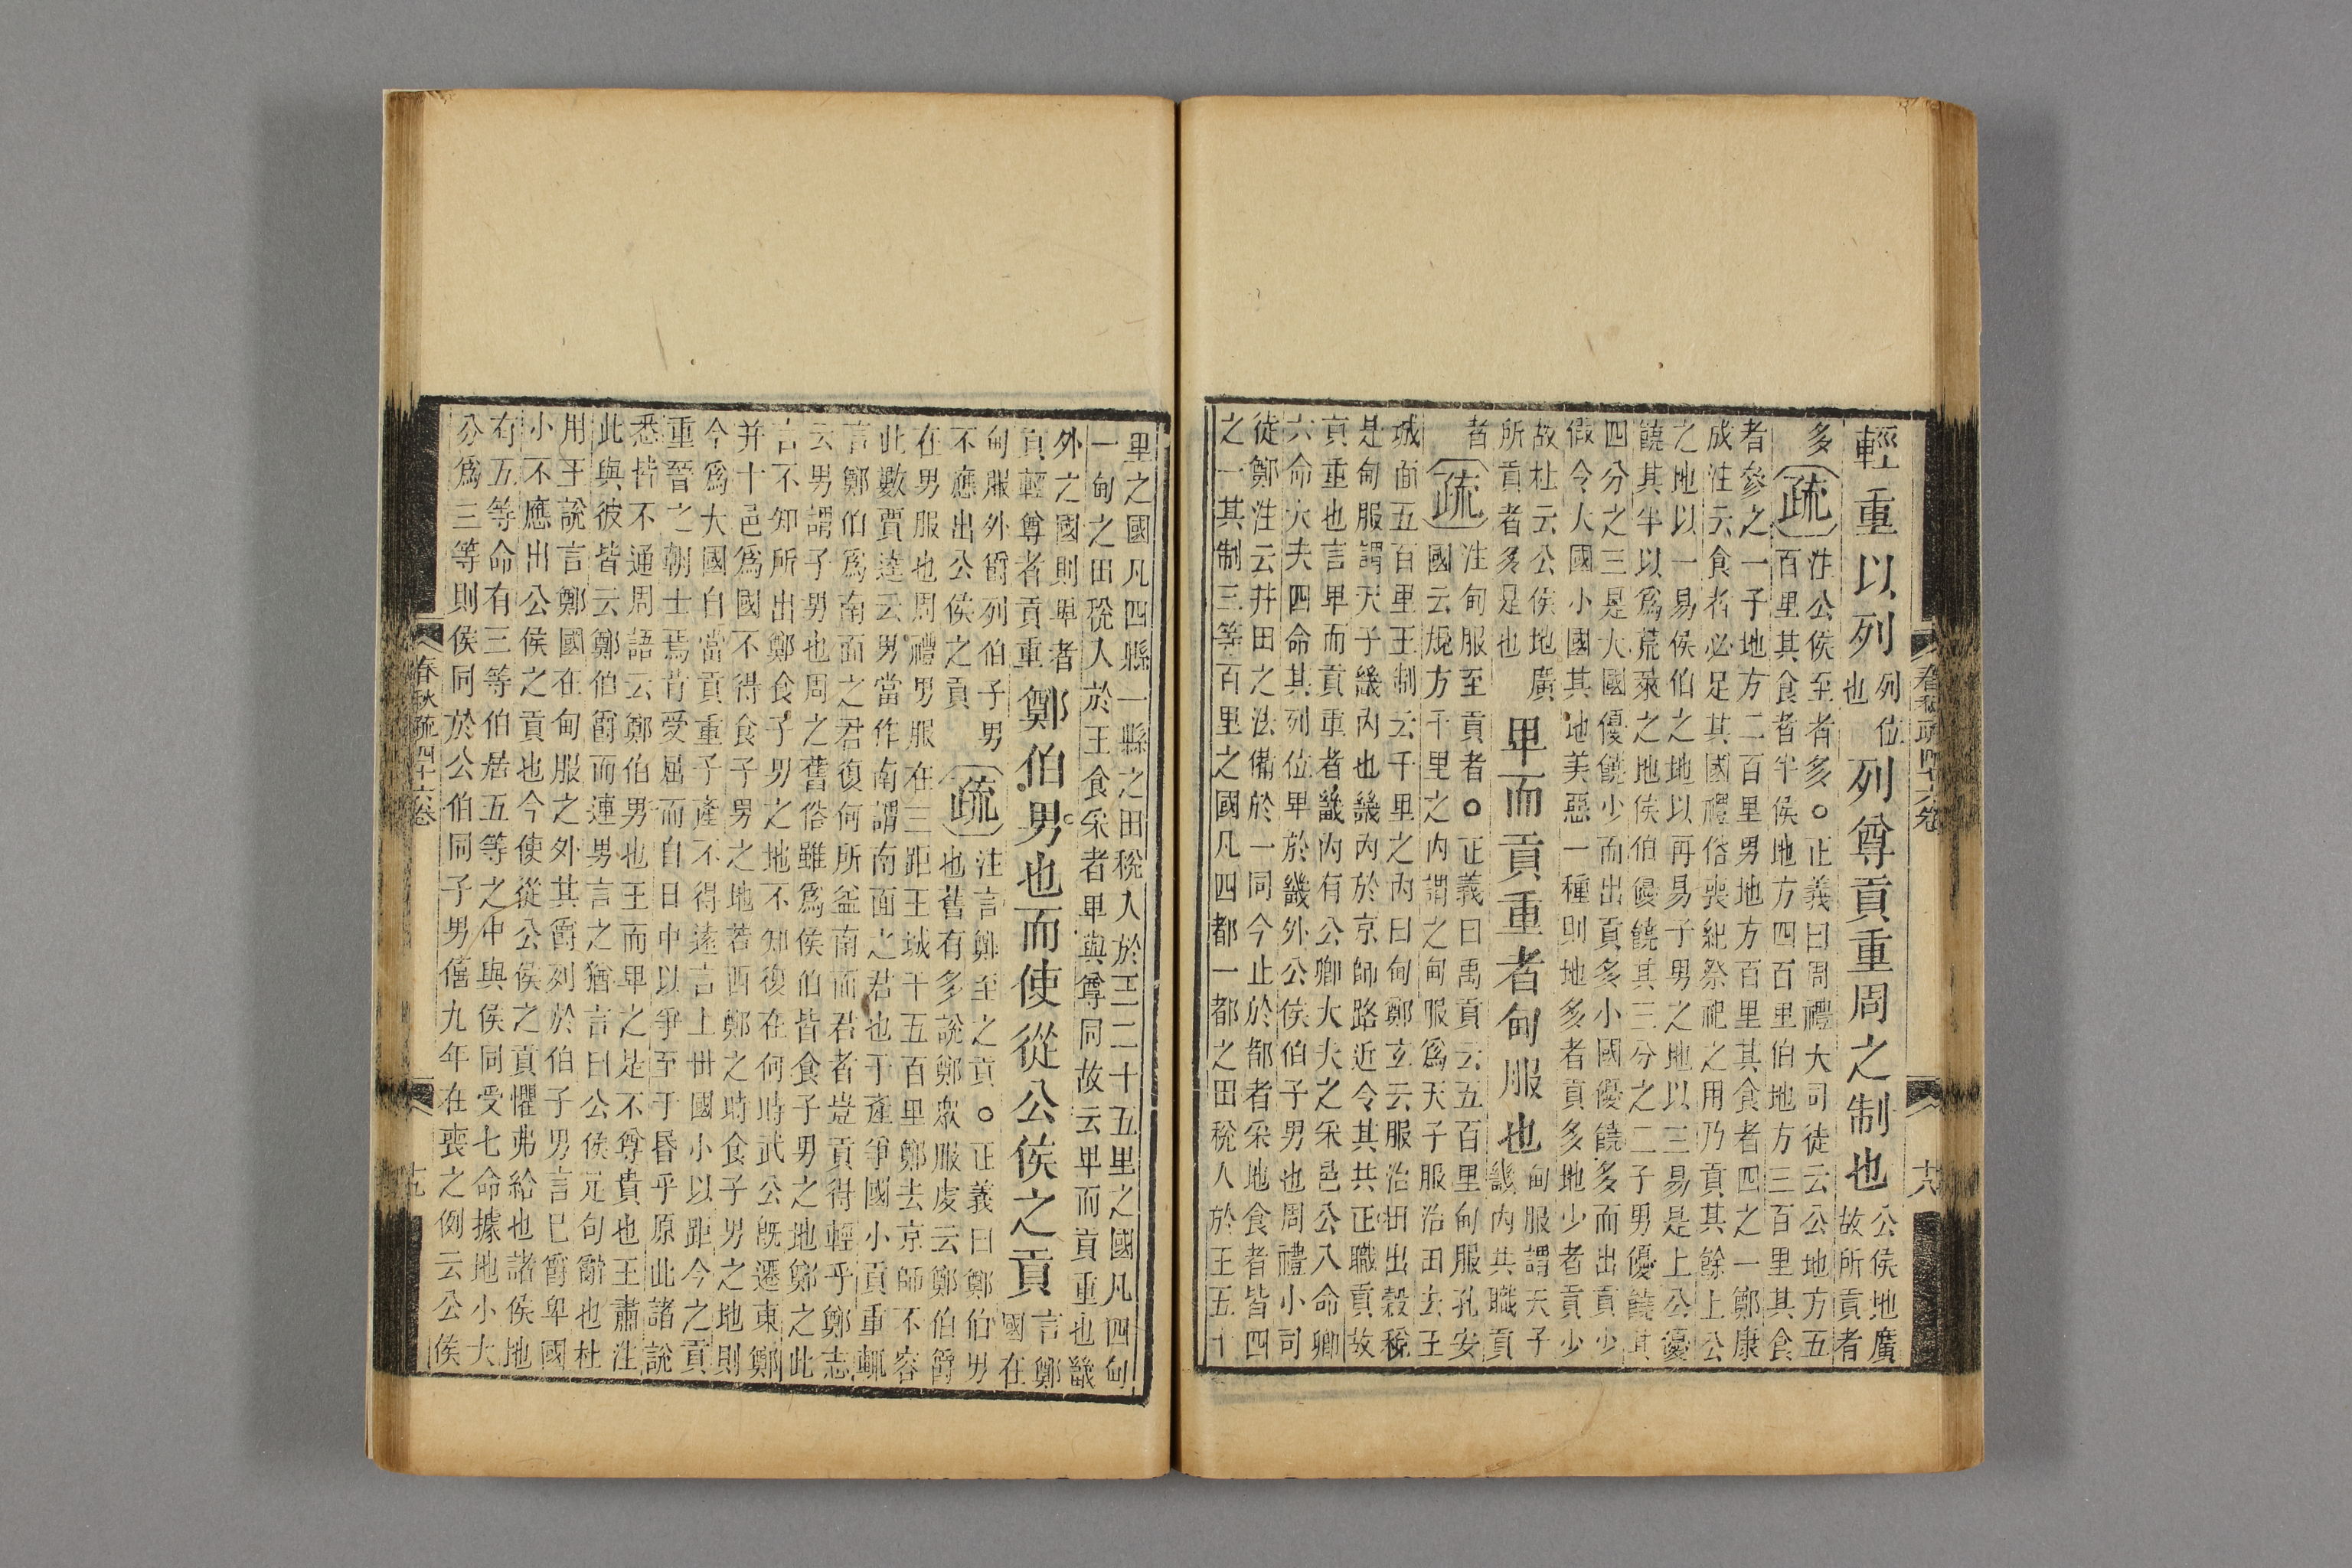 春秋疏四十六卷
十八
輕重以列列位也列尊貢重周之制也公侯地廣故所貢者
多疏注公侯至者多○正義曰周禮大司徒云公地方五
百里其食者半侯地方四百里伯地方三百里其食
者參之一子地方二百里男地方百里其食者四之一鄭康
成注云食者必足其國禮俗喪紀祭祀之用乃貢其餘上公
之地以一易侯伯之地以再易子男之地以三易是上公優
饒其半以爲荒萊之地侯伯優饒其三分之二子男優饒其
四分之三是大國優饒少而出貢多小國優饒多而出貢少
假令大國小國其地美惡一種則地多者貢多地少者貢少
故杜云公侯地廣
所貢者多是也
卑而貢重者甸服也甸服謂天子畿内共職貢
者疏注甸服至貢者○正義曰禹貢云五百里甸服孔安
國云規方千里之内謂之甸服爲天子服治田去王
城面五百里王制云千里之内曰甸鄭玄云服治田出穀稅
是甸服謂天子畿内也畿内於京師路近令其共正職貢故
貢重也言卑而貢重者畿内有公卿大夫之采邑公八命卿
六命大夫四命其列位卑於畿外公侯伯子男也周禮小司
徒鄭注云井田之法備於一同今止於都者采地食者皆四
之一其制三等百里之國凡四都一都之田稅入於王五十
里之國凡四縣一縣之田稅入於王二十五里之國凡四甸
一甸之田稅入於王食采者卑與尊同故云卑而貢重也畿
外之國則卑者
貢輕尊者貢重
鄭伯男也而使從公侯之貢言鄭國在
甸服外爵列伯子男
不應出公侯之貢
疏注言鄭至之貢○正義曰鄭伯男
也舊有多說鄭眾服虔云鄭伯爵
在男服也周禮男服在三距王城千五百里鄭去京師不容
此數賈逵云男當作南謂南面之君也子產爭國小貢重輒
言鄭伯爲南面之君復何所益南面君者豈貢得輕乎鄭志
云男謂子男也周之舊俗雖爲侯伯皆食子男之地鄭之此
言不知所出鄭食子男之地不知復在何時武公旣遷東鄭
并十邑爲國不得食子男之地若西鄭之時食子男之地則
今爲大國自當貢重子產不得遠言上世國小以距今之貢
重晉之朝士焉肯受屈而自日中以爭至于昬乎原此諸說
悉皆不通周語云鄭伯男也王而卑之是不尊貴也王肅注
此與彼皆云鄭伯爵而連男言之猶言曰公侯足句辭也杜
用王說言鄭國在甸服之外其爵列於伯子男言巳爵卑國
小不應出公侯之貢也今使從公侯之貢懼弗給也諸侯地
有五等命有三等伯居五等之中與侯同受七命據地小大
分爲三等則侯同於公伯同子男僖九年在喪之例云公侯
春秋疏四十六卷
十九